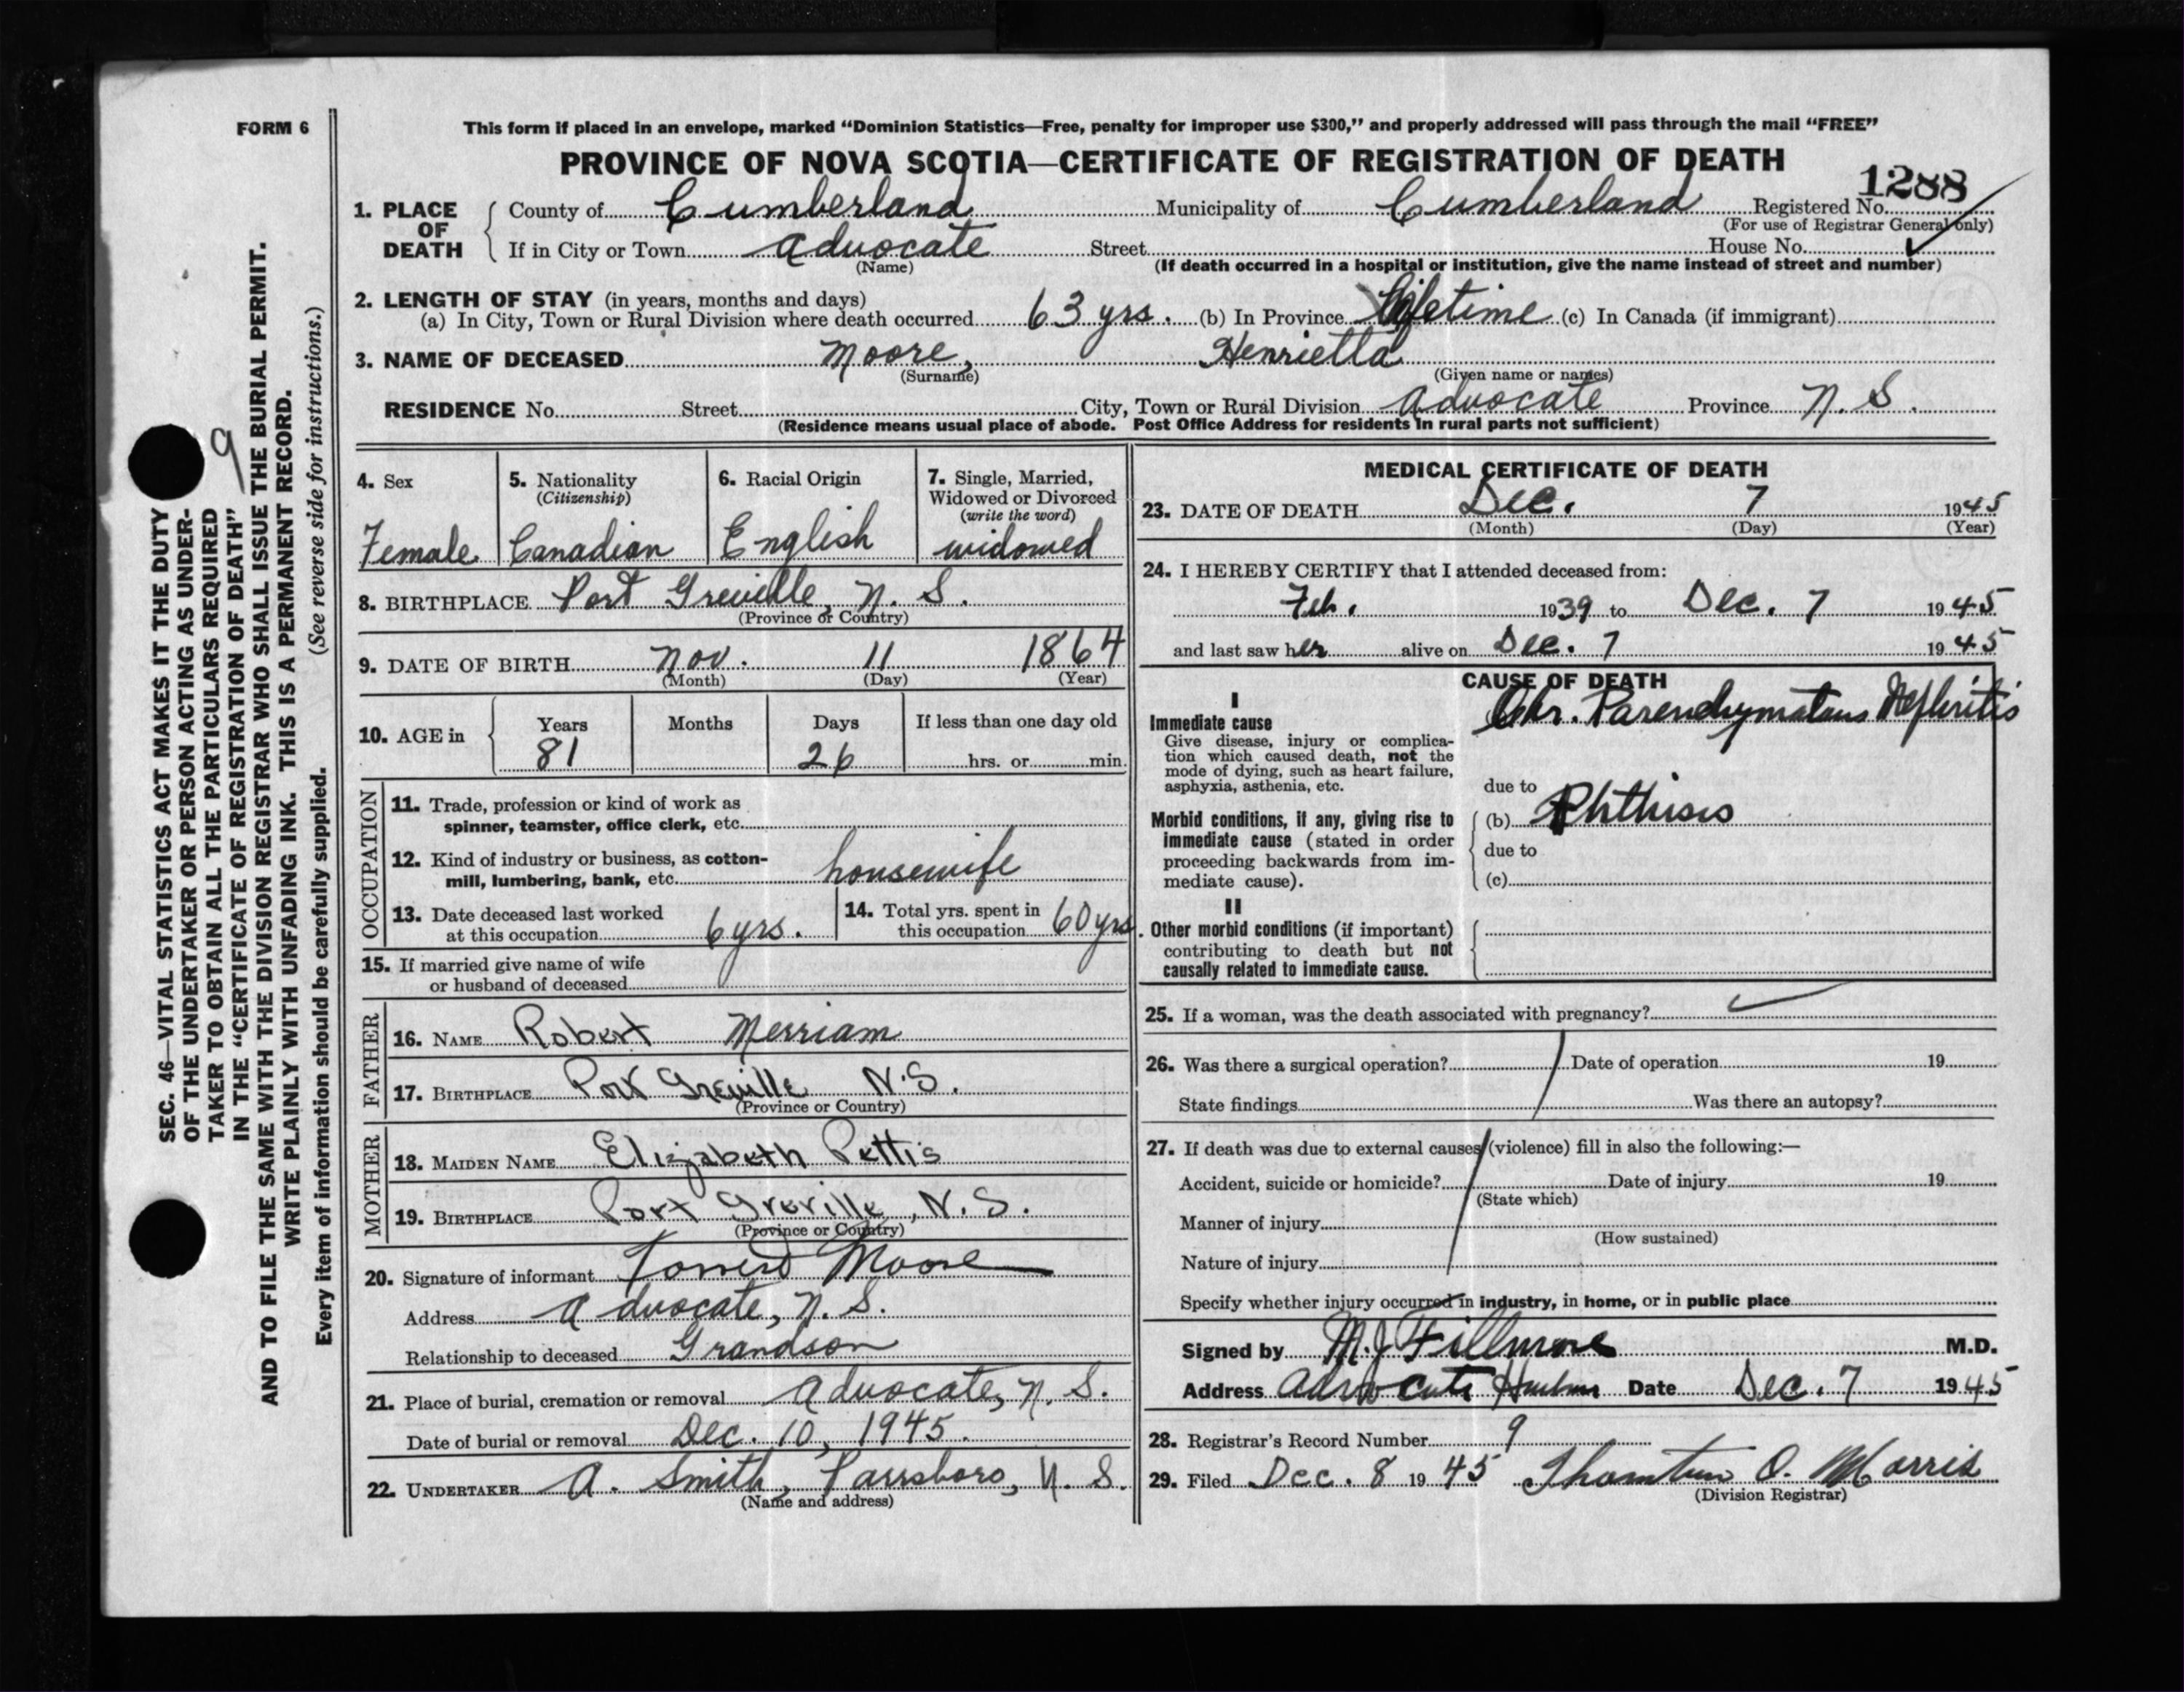 FORM 6
This form if placed in an envelope, marked “Dominion Statistics—Free, penalty for improper use $300,” and properly addressed will pass through the mail “FREE”
PROVINCE OF NOVA SCOTIA—CERTIFICATE OF REGISTRATION OF DEATH
1288
1. PLACE OF DEATH
County of Cumberland Municipality of Cumberland Registered No.
(For use of Registrar General only)
If in City or Town Advocate Street House No.
(Name) (If death occurred in a hospital or institution, give the name instead of street and number)
2. LENGTH OF STAY (in years, months and days)
(a) In City, Town or Rural Division where death occurred 63 yrs. (b) In Province Lifetime (c) In Canada (if immigrant)
3. NAME OF DECEASED Moore, Henrietta
(Surname) (Given name or names)
RESIDENCE No. Street City, Town or Rural Division Advocate Province N. S.
(Residence means usual place of abode. Post Office Address for residents in rural parts not sufficient)
4. Sex
Female
5. Nationality
(Citizenship)
Canadian
6. Racial Origin
English
7. Single, Married,
Widowed or Divorced
(write the word)
widowed
8. BIRTHPLACE Port Greville, N. S.
(Province or Country)
9. DATE OF BIRTH Nov. 11 1864
(Month) (Day) (Year)
10. AGE in
Years Months Days If less than one day old
81 26 hrs. or min.
OCCUPATION
11. Trade, profession or kind of work as
spinner, teamster, office clerk, etc.
12. Kind of industry or business, as cotton-
mill, lumbering, bank, etc. housewife
13. Date deceased last worked
at this occupation 6 yrs.
14. Total yrs. spent in
this occupation 60 yrs.
15. If married give name of wife
or husband of deceased
FATHER
16. NAME Robert Merriam
17. BIRTHPLACE Port Greville N.S.
(Province or Country)
MOTHER
18. MAIDEN NAME Elizabeth Pettis
19. BIRTHPLACE Port Greville, N. S.
(Province or Country)
20. Signature of informant Forrest Moore
Address Advocate, N. S.
Relationship to deceased Grandson
21. Place of burial, cremation or removal Advocate, N. S.
Date of burial or removal Dec. 10, 1945.
22. UNDERTAKER A. Smith, Parrsboro, N. S.
(Name and address)
MEDICAL CERTIFICATE OF DEATH
23. DATE OF DEATH Dec. 7 1945
(Month) (Day) (Year)
24. I HEREBY CERTIFY that I attended deceased from:
Feb. 1939 to Dec. 7 1945
and last saw her alive on Dec. 7 1945
CAUSE OF DEATH
I
Immediate cause
Give disease, injury or complica-
tion which caused death, not the
mode of dying, such as heart failure,
asphyxia, asthenia, etc.
Chr. Parenchymatous Nephritis
due to
Morbid conditions, if any, giving rise to
immediate cause (stated in order
proceeding backwards from im-
mediate cause).
(b) Phthisis
due to
(c)
II
Other morbid conditions (if important)
contributing to death but not
causally related to immediate cause.
25. If a woman, was the death associated with pregnancy?
26. Was there a surgical operation? Date of operation 19
State findings Was there an autopsy?
27. If death was due to external causes (violence) fill in also the following:—
Accident, suicide or homicide? Date of injury 19
(State which)
Manner of injury
(How sustained)
Nature of injury
Specify whether injury occurred in industry, in home, or in public place
Signed by M.J. Fillmore M.D.
Address Advocate Harbour Date Dec. 7 1945
28. Registrar's Record Number 9
29. Filed Dec. 8 1945 Thornton O. Morris
(Division Registrar)
9
SEC. 46—VITAL STATISTICS ACT MAKES IT THE DUTY
OF THE UNDERTAKER OR PERSON ACTING AS UNDER-
TAKER TO OBTAIN ALL THE PARTICULARS REQUIRED
IN THE “CERTIFICATE OF REGISTRATION OF DEATH”
AND TO FILE THE SAME WITH THE DIVISION REGISTRAR WHO SHALL ISSUE THE BURIAL PERMIT.
WRITE PLAINLY WITH UNFADING INK. THIS IS A PERMANENT RECORD.
Every item of information should be carefully supplied. (See reverse side for instructions.)